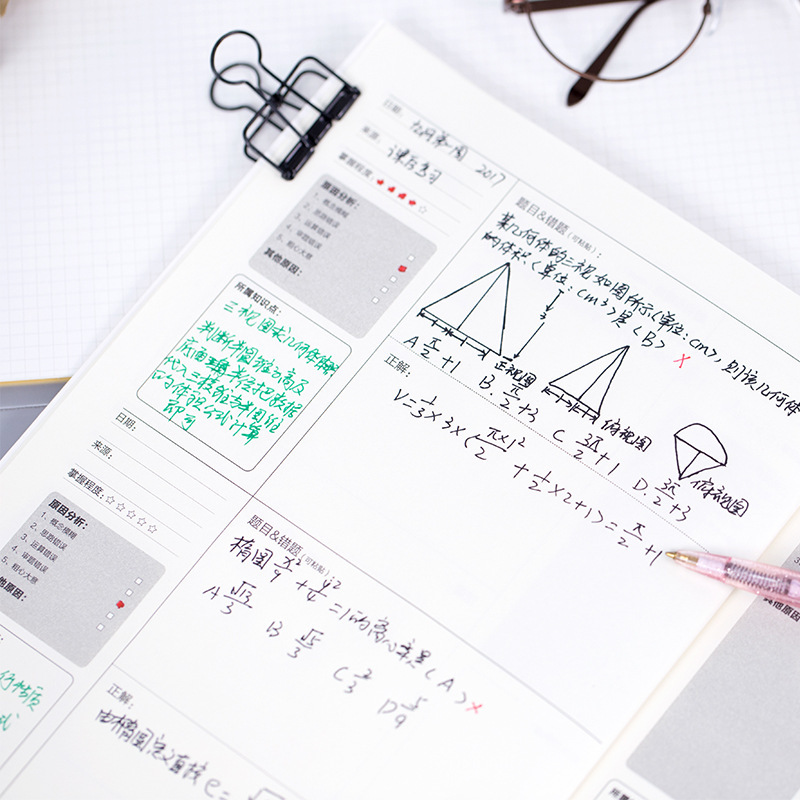 日期: 九月第一周 2017
来源: 课后练习
掌握程度:
原因分析:
1、概念模糊
2、思路错误
3、运算错误
4、审题错误
5、粗心大意
其他原因:
所属知识点:
三视图求几何体体积
判断为圆锥的高及
底面半径把数据
代入三棱锥与半圆组
的体积公式计算
即可
题目&错题(可粘贴):
某几何体的三视如图所示(单位:cm),则该几何体
的体积(单位:cm³)是(B) ×
3
正视图
俯视图
俯视图
A π/2+1 B. π/2+3 C 3π/2+1 D. 3π/2+3
正解:
V=1/3×3×(π×1²/2+1/2×2×1)=π/2+1
日期:
来源:
掌握程度:
原因分析:
1、概念模糊
2、思路错误
3、运算错误
4、审题错误
5、粗心大意
其他原因:
行性质
式
题目&错题(可粘贴):
椭圆 x²/9+y²/4=1的离心率是(A) ×
A √13/3 B √5/3 C 2/3 D 5/9
正解:
由椭圆定义直接e=
其他原因:
所属知识点: